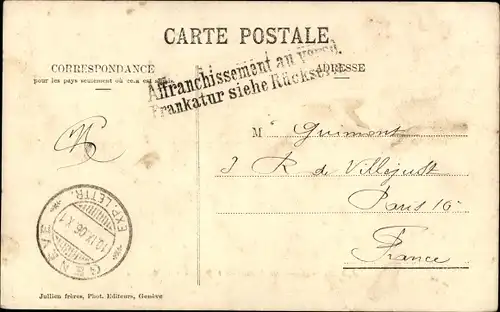 CARTE POSTALE.
CORRESPONDANCE
pour les pays seulement où c'en est admis.
ADRESSE
Affranchissement au verso.
Frankatur siehe Rückseite.
M Guimont
3 R de Villejust
Paris 16
France
GENÈVE
EXP. LETTR.
10.IX.06.X1
Jullien frères, Phot. Editeurs, Genève